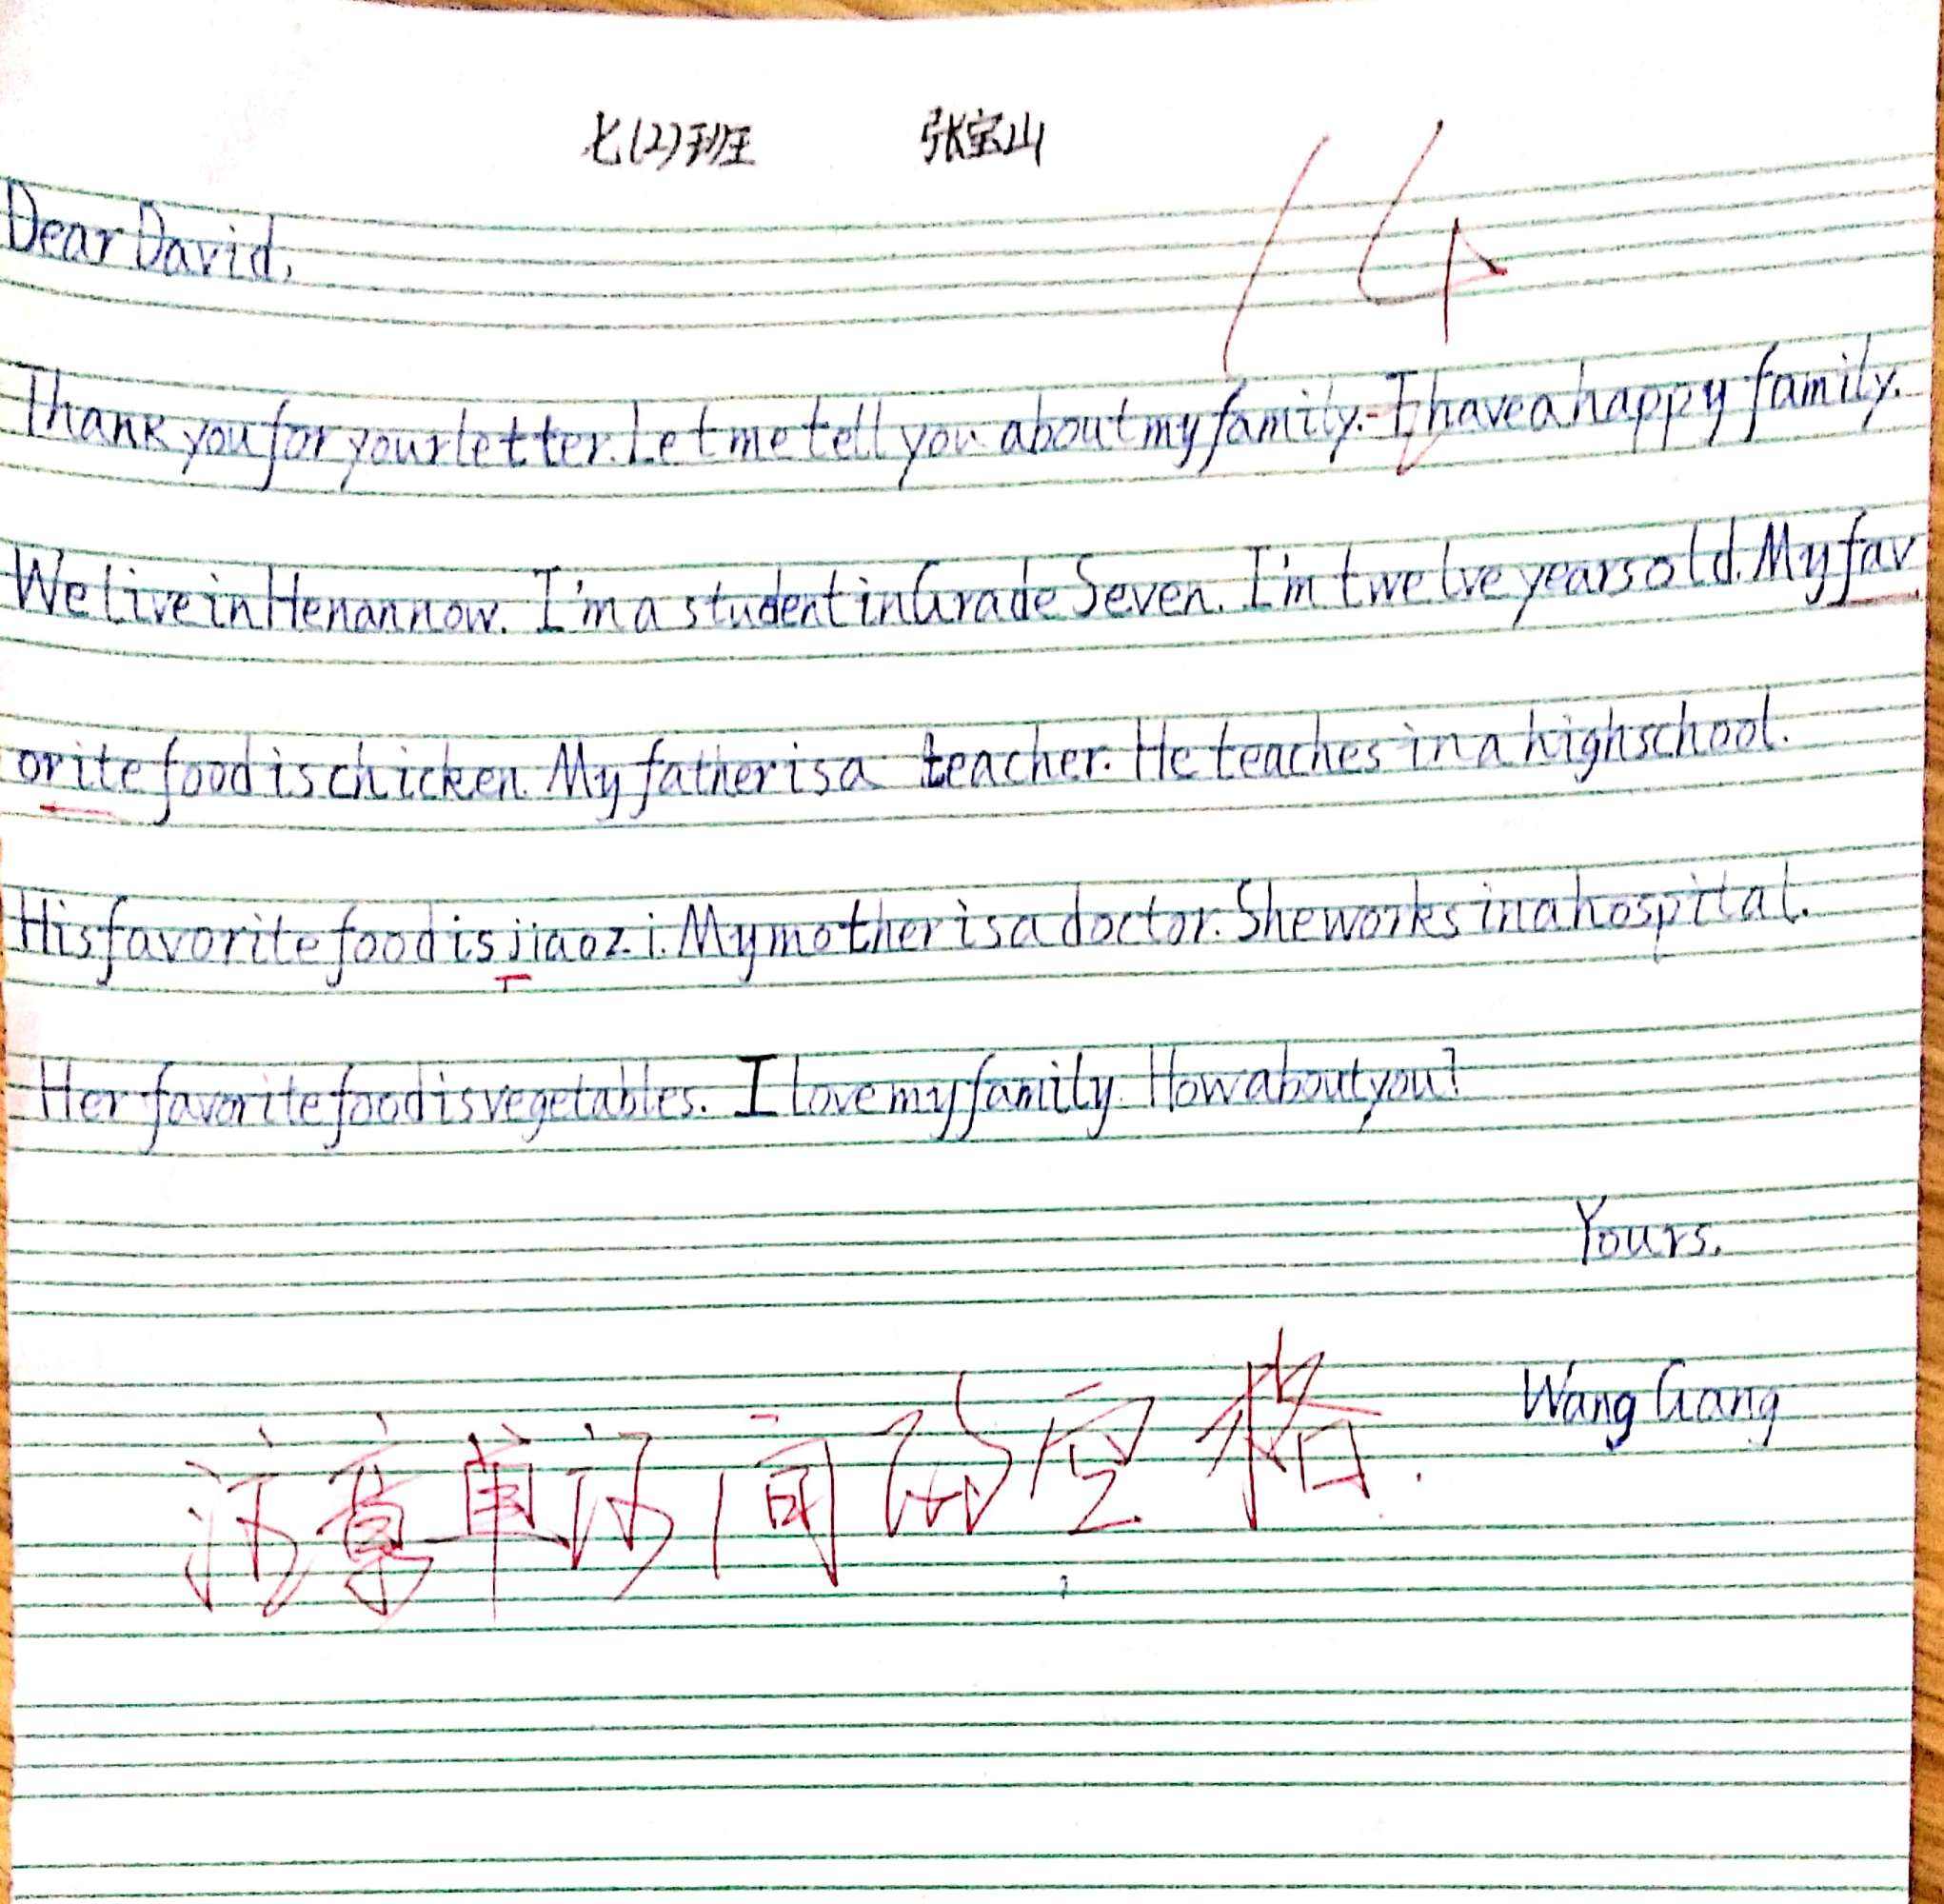 七(2)班 张宝山
14
Dear David,
Thank you for your letter. Let me tell you about my family. I have a happy family.
We live in Henan now. I'm a student in Grade Seven. I'm twelve years old. My fav
orite food is chicken. My father is a teacher. He teaches in a high school.
His favorite food is jiaozi. My mother is a doctor. She works in a hospital.
Her favorite food is vegetables. I love my family. How about you?
Yours,
Wang Gang
注意单词间的空格.